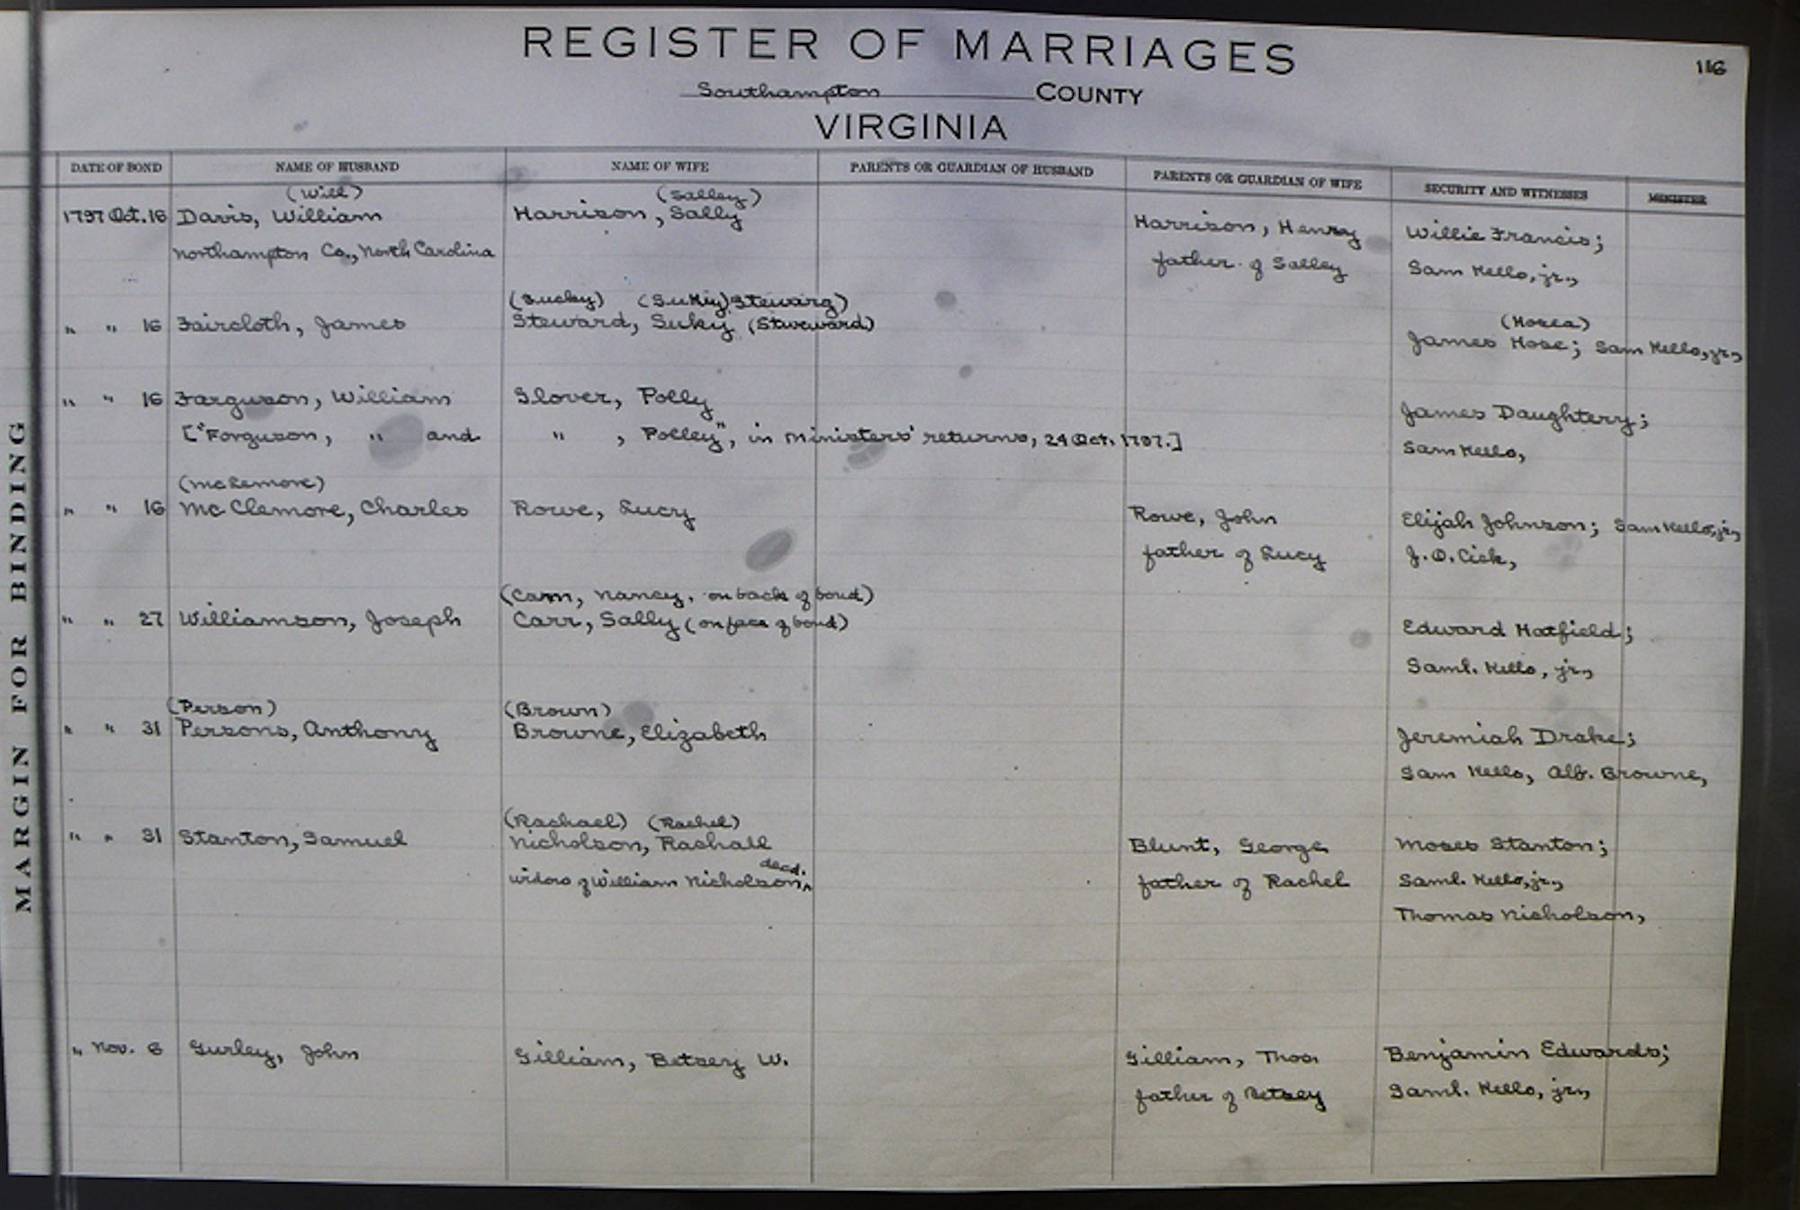 REGISTER OF MARRIAGES
116
Southampton COUNTY
VIRGINIA
DATE OF BOND NAME OF HUSBAND NAME OF WIFE PARENTS OR GUARDIAN OF HUSBAND PARENTS OR GUARDIAN OF WIFE SECURITY AND WITNESSES MINISTER
(Will) (Salley)
1797 Oct. 16 Davis, William Harrison, Sally Harrison, Henry Willie Francis;
Northampton Co., North Carolina father of Salley Sam Kello, jr.,
(Sucky) (Sukiy) Stewarg)
" " 16 Faircloth, James Steward, Suky (Staweward) (Hosea)
James Hose; Sam Kello, jr.,
" " 16 Farguson, William Glover, Polly James Daughtery;
["Forguson, " and " , Polley", in Ministers' returns, 24 Oct. 1797.] Sam Kello,
(McLemore)
" " 16 McClemore, Charles Rowe, Lucy Rowe, John Elijah Johnson; Sam Kello, jr.,
father of Lucy J. O. Cick,
(Carn, Nancy, on back of bond)
" " 27 Williamson, Joseph Carr, Sally (on face of bond) Edward Hatfield;
Saml. Kello, jr.,
(Person) (Brown)
" " 31 Persons, Anthony Browne, Elizabeth Jeremiah Drake;
Sam Kello, Alb. Browne,
(Rachael) (Rachel)
" " 31 Stanton, Samuel Nicholson, Rachall Blunt, George Moses Stanton;
decd.
widow of William Nicholson, father of Rachel Saml. Kello, jr.,
Thomas Nicholson,
" Nov. 6 Gurley, John Gilliam, Betsey W. Gilliam, Thos. Benjamin Edwards;
father of Betsey Saml. Kello, jr.,
MARGIN FOR BINDING